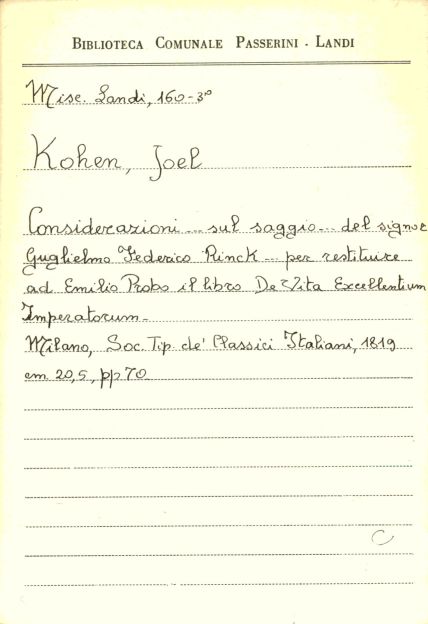 BIBLIOTECA COMUNALE PASSERINI - LANDI
Misc. Landi, 160-3º
Kohen, Joel
Considerazioni ... sul saggio ... del signor
Guglielmo Federico Rinck ... per restituire
ad Emilio Probo il libro De Vita Excellentium
Imperatorum -
Milano, Soc. Tip. de' Classici Italiani, 1819
cm 20,5, pp 70
C